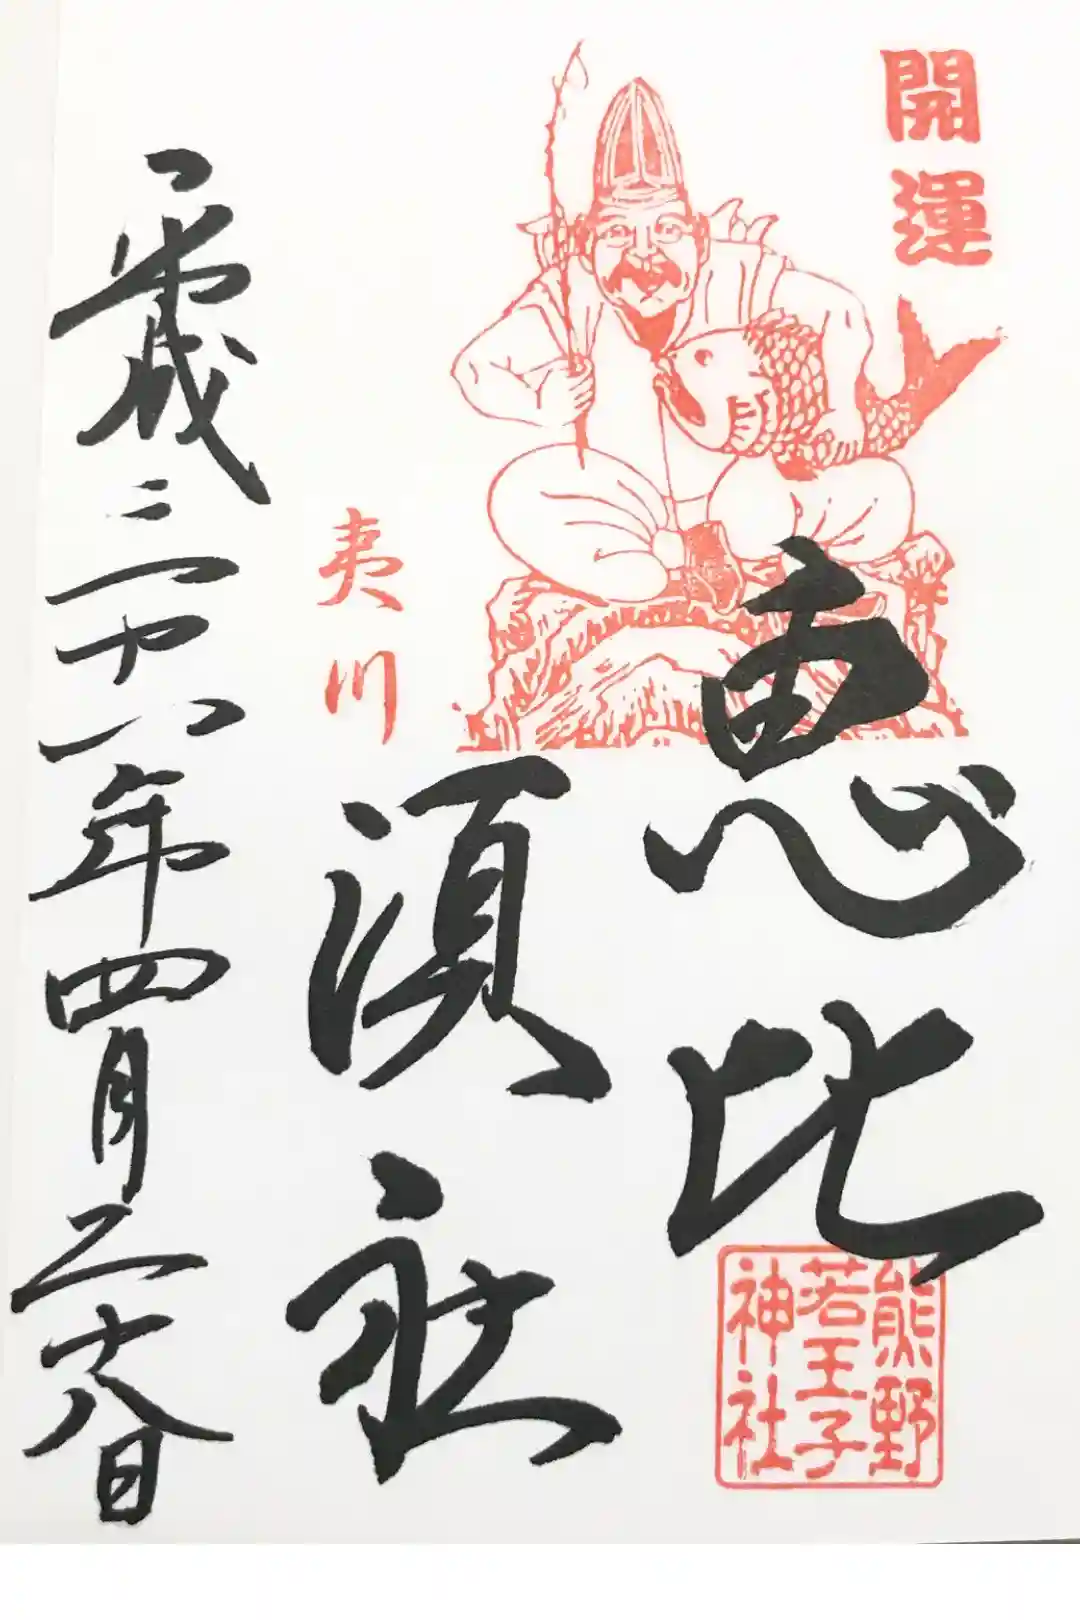 開運
恵比
須社
夷川
熊野
若王子
神社
平成二十八年四月二十八日